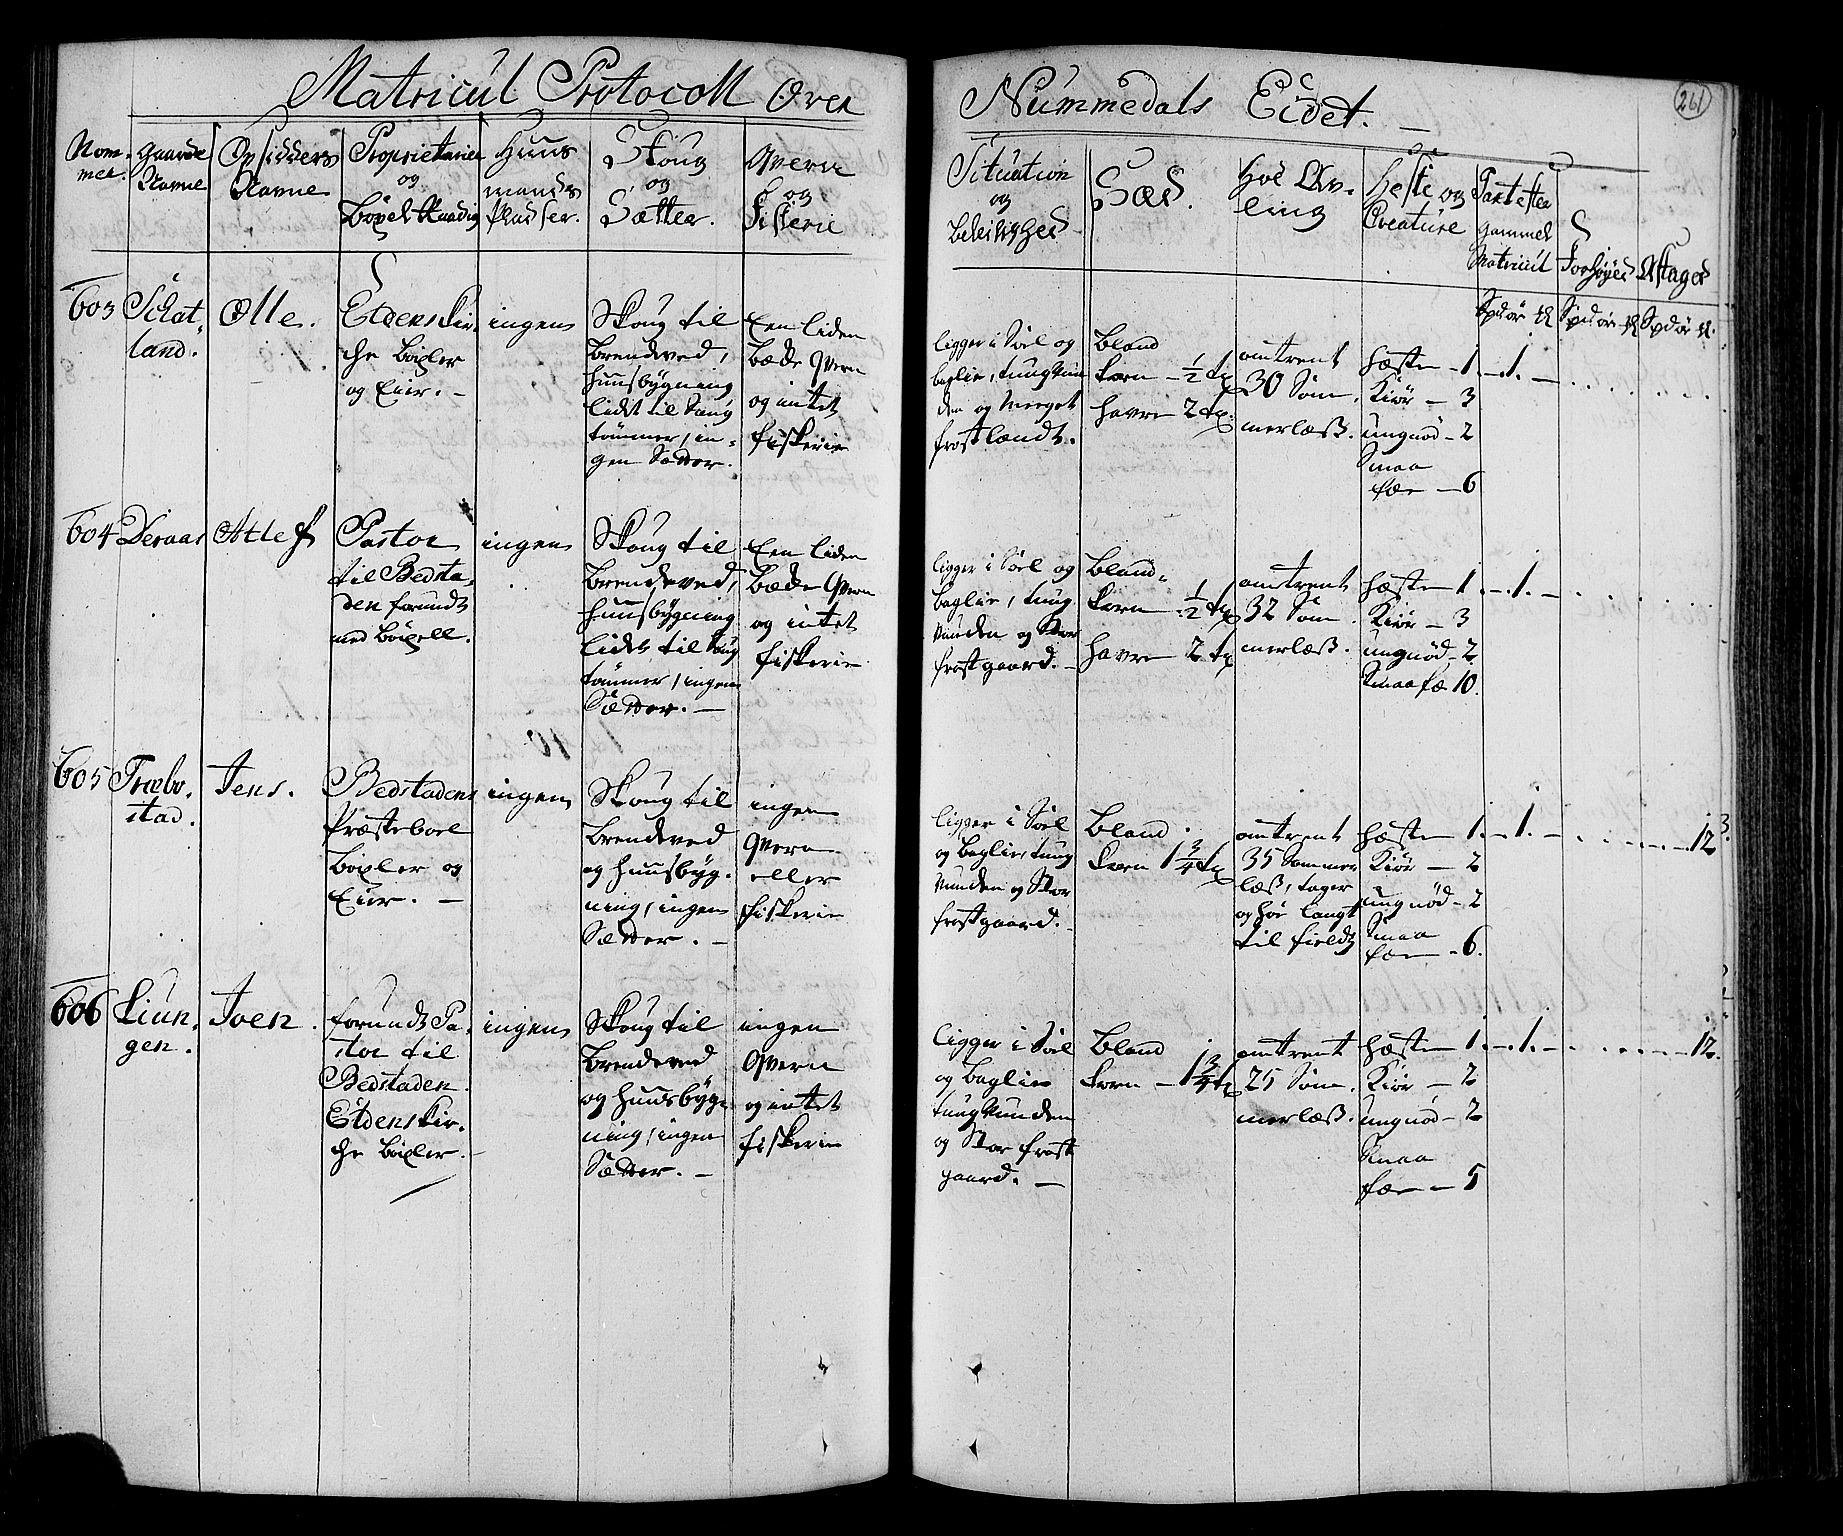 Matricul Protocoll Over
Nummedals Eidet.
261
Nom-
mer.
Gaarde
Navne
Opsidders
Navne
Proprietarier
og
Böxel Raadig
Huus
mands
Pladser.
Skoug
og
Sætter.
Qvern
og
Fiskerie
Situation
og
Beleilighed
Sæd.
Höe Av-
ling
Heste og
Creature
Taxt efter
gammel
Matricul
Forhöyes
Aftages
Spd ör
Spd ör
Spd ör
603
land.
Olle.
Eidens Kir-
che böxler
og Eier.
ingen
Skoug til
brendeved,
huusbygning
lidet til Saug
tömmer, in-
gen Sætter.
Een liden
bæcke Qvern
og intet
fiskerie
ligger i Soel og
baglie, tungvun
den og meeget
frostlændt.
bland
korn - 1/2 tø
havre 2 tø.
omtrent
30 Som-
merlæss.
hæste - 1.
Kiör - 3
ungnöd - 2
Smaa
fæe - 6
- 1. -
604
Deraas
Atlef
Pastor
til Bedsta-
den forundt
med böxell.
ingen
Skoug til
brendeved,
huusbygning
lidet til Saug
tömmer, ingen
Sætter. -
Een liden
bæcke Qvern
og intet
fiskerie
ligger i Soel og
baglie, tung
vunden og Stor
frostgaard. -
bland-
korn 1/2 tø
havre 2 tø
omtrent
32 Som-
merlæss.
hæste 1.
Kiör - 3
ungnöd - 2
Smaafæ 10.
- 1. -
605
Træbo-
stad.
Jens.
Bedstadens
Præsteboel
böxler og
Eier. -
ingen
Skoug til
brendeved
og huusbyg-
ning, ingen
Sætter. -
ingen
Qvern
eller
fiskerie
ligger i Soel
og baglie, tung
vunden og Stor
frostgaard. -
bland
korn 1 3/4 tø
omtrent
35 Sommer
læss, tager
og höe langt
til fields
hæste 1.
Kiör - 2
ungnöd - 2
Smaa
fæe - 6.
- 1. -
12
606
Liun-
gen.
Joen.
forundt Pa-
stor til
Bedstaden.
Eidens Kir-
che böxler.
ingen
Skoug til
brendeved
og huusbyg-
ning, ingen
Sætter. -
ingen
Qvern
og intet
fiskerie
ligger i Soel
og baglie
tungvunden
og Stor frost
gaard. -
bland
korn - 1 3/4 tø
omtrent
25 Som-
merlæss.
hæste 1.
Kiör - 2
ungnöd - 2
Smaa
fæe - 5
- 1. -
12.